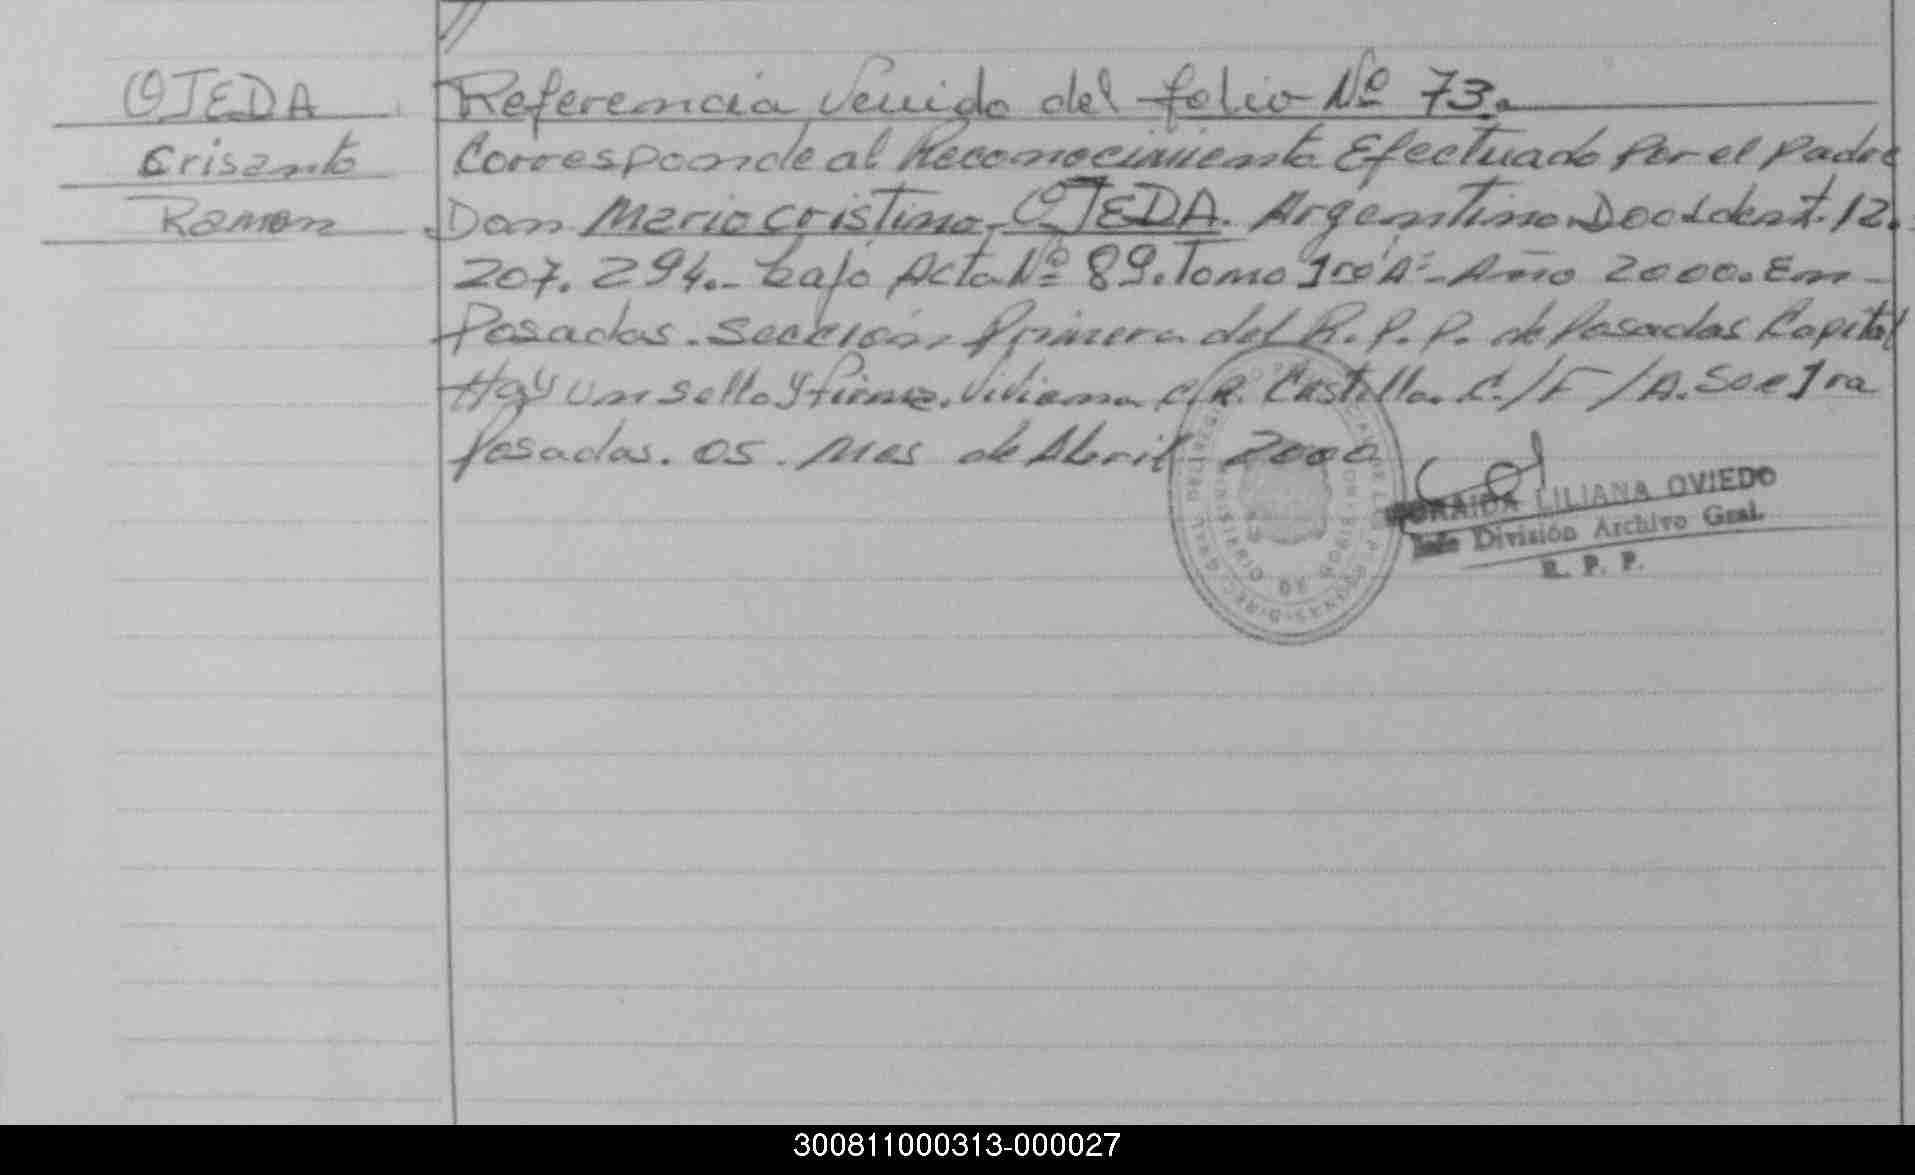 OJEDA
Crisanto
Ramon
Referencia Venida del folio Nº 73.
Corresponde al Reconocimiento Efectuado Por el Padre
Don Mario Cristino OJEDA. Argentino Doc Ident. 12.
207.294.- bajo Acta Nº 89. Tomo 1ro A- Año 2000. En
Posadas. Sección Primera del R.P.P. de Posadas Capital
Hay un sello y firma. Viviana C.R. Castillo. C./F/A. Sec 1ra
Posadas. 05. Mes de Abril 2000
LILIANA OVIEDO
Jefe División Archivo Gral.
R. P. P.
300811000313-000027